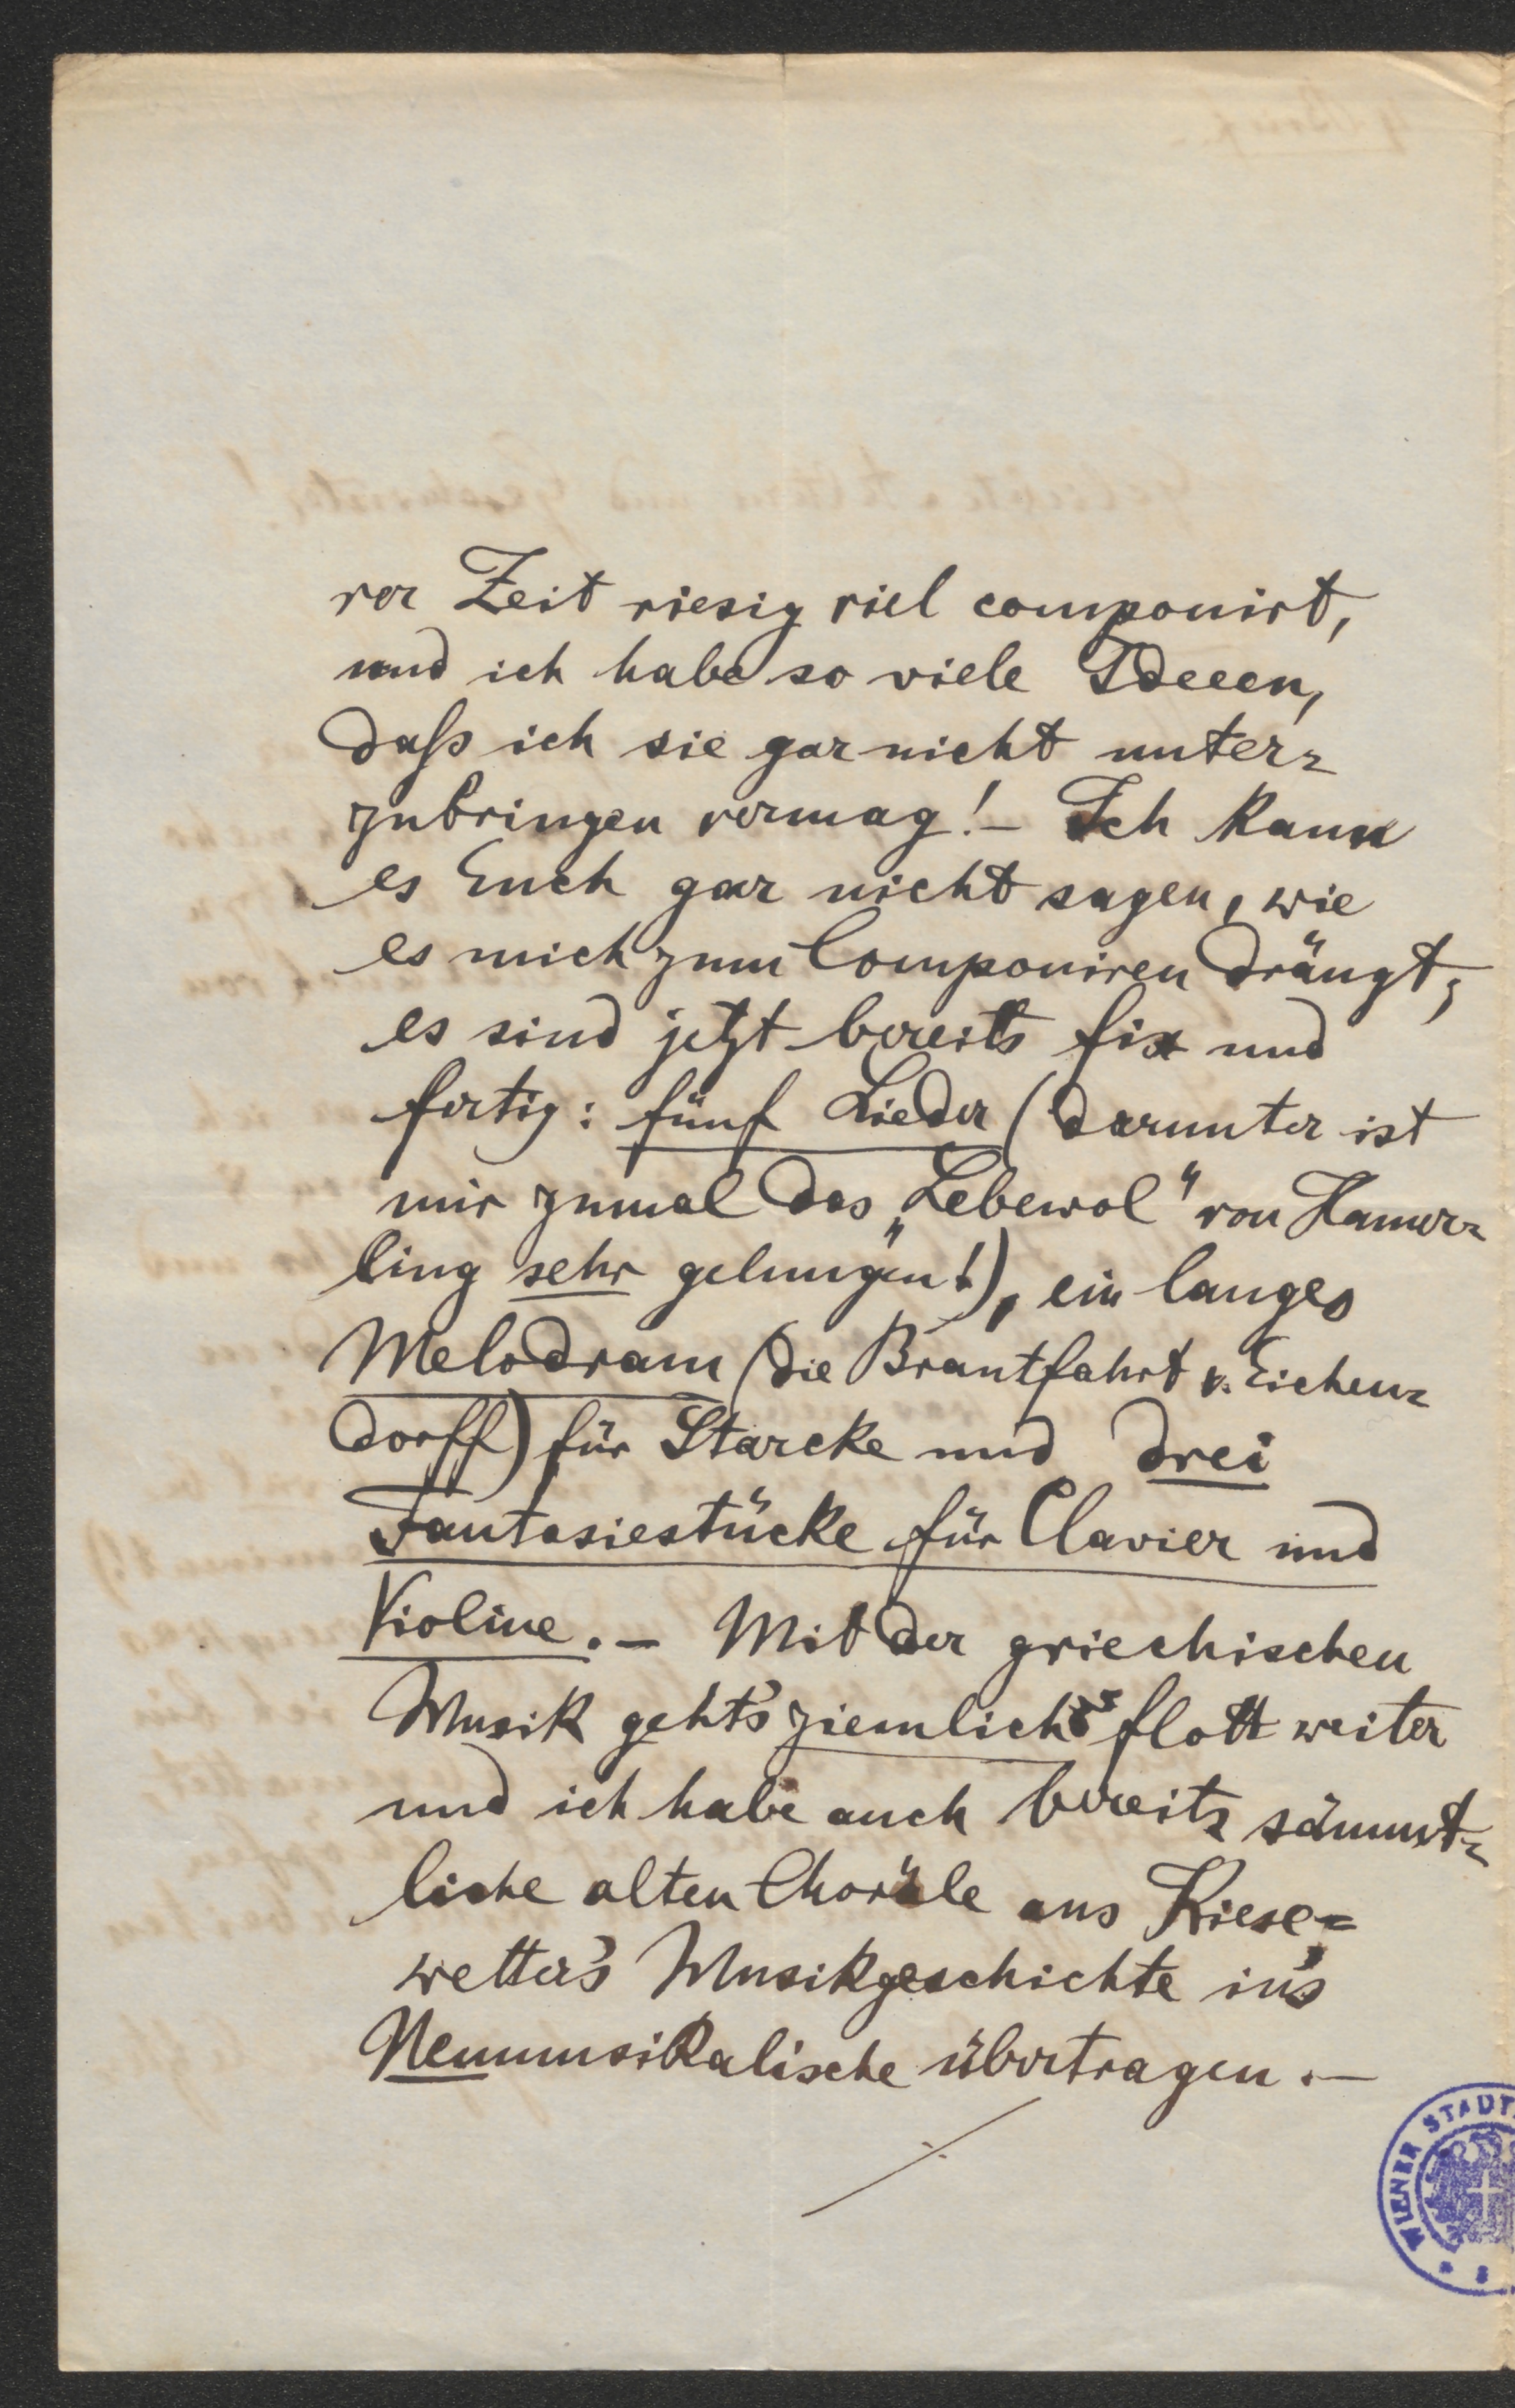 rer Zeit riesig viel componirt,
und ich habe so viele Ideeen,
daß ich sie gar nicht unter=
zubringen vermag! – Ich kann
es Euch gar nicht sagen, wie
es mich zum Componiren drängt;
es sind jetzt bereits fix und
fertig: fünf Lieder (darunter ist
mir zumal das „Lebewol" von Hamer=
ling sehr gelungen!), ein langes
Melodram (die Brautfahrt v. Eichen=
dorff) für Starcke und drei
Fantasiestücke für Clavier und
Violine. – Mit der griechischen
Musik geht's ziemlich flott weiter
und ich habe auch bereits sämmt=
liche alten Choräle aus Kiese=
wetter's Musikgeschichte in's
Neumusikalische übertragen. –
WIENER STADT